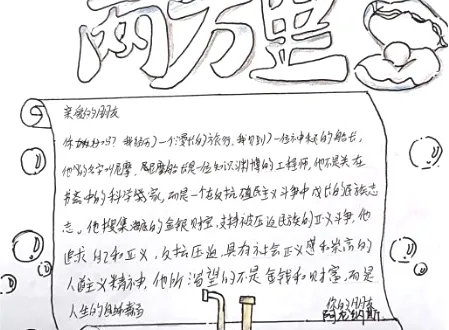 两万里
亲爱的朋友
你好吗?我结识了一个漫长的旅行,我见到了一位示中未来的船长,
他的名字叫尼摩,尼摩船长是一位知识渊博的工程师,他不是关在
书斋中的科学怪家,而是一个在反抗殖民主义斗争中成长的民族志
志。他搜集海底的金银财宝,支持被压迫民族的正义斗争,他
追求自由和正义,反抗压迫,具有社会正义感和崇高的
人道主义精神,他所渴望的不是金钱和财富,而是
人生的自由
你的朋友
阿龙纳斯